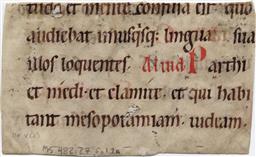 tudo et mente confusa est. quo
audiebat unusqsq; linguam sua
illos loquentes. Parthi
et medi. et elamite. et qui habi
tant mesopotamiam. iudeam.
MS 482.27